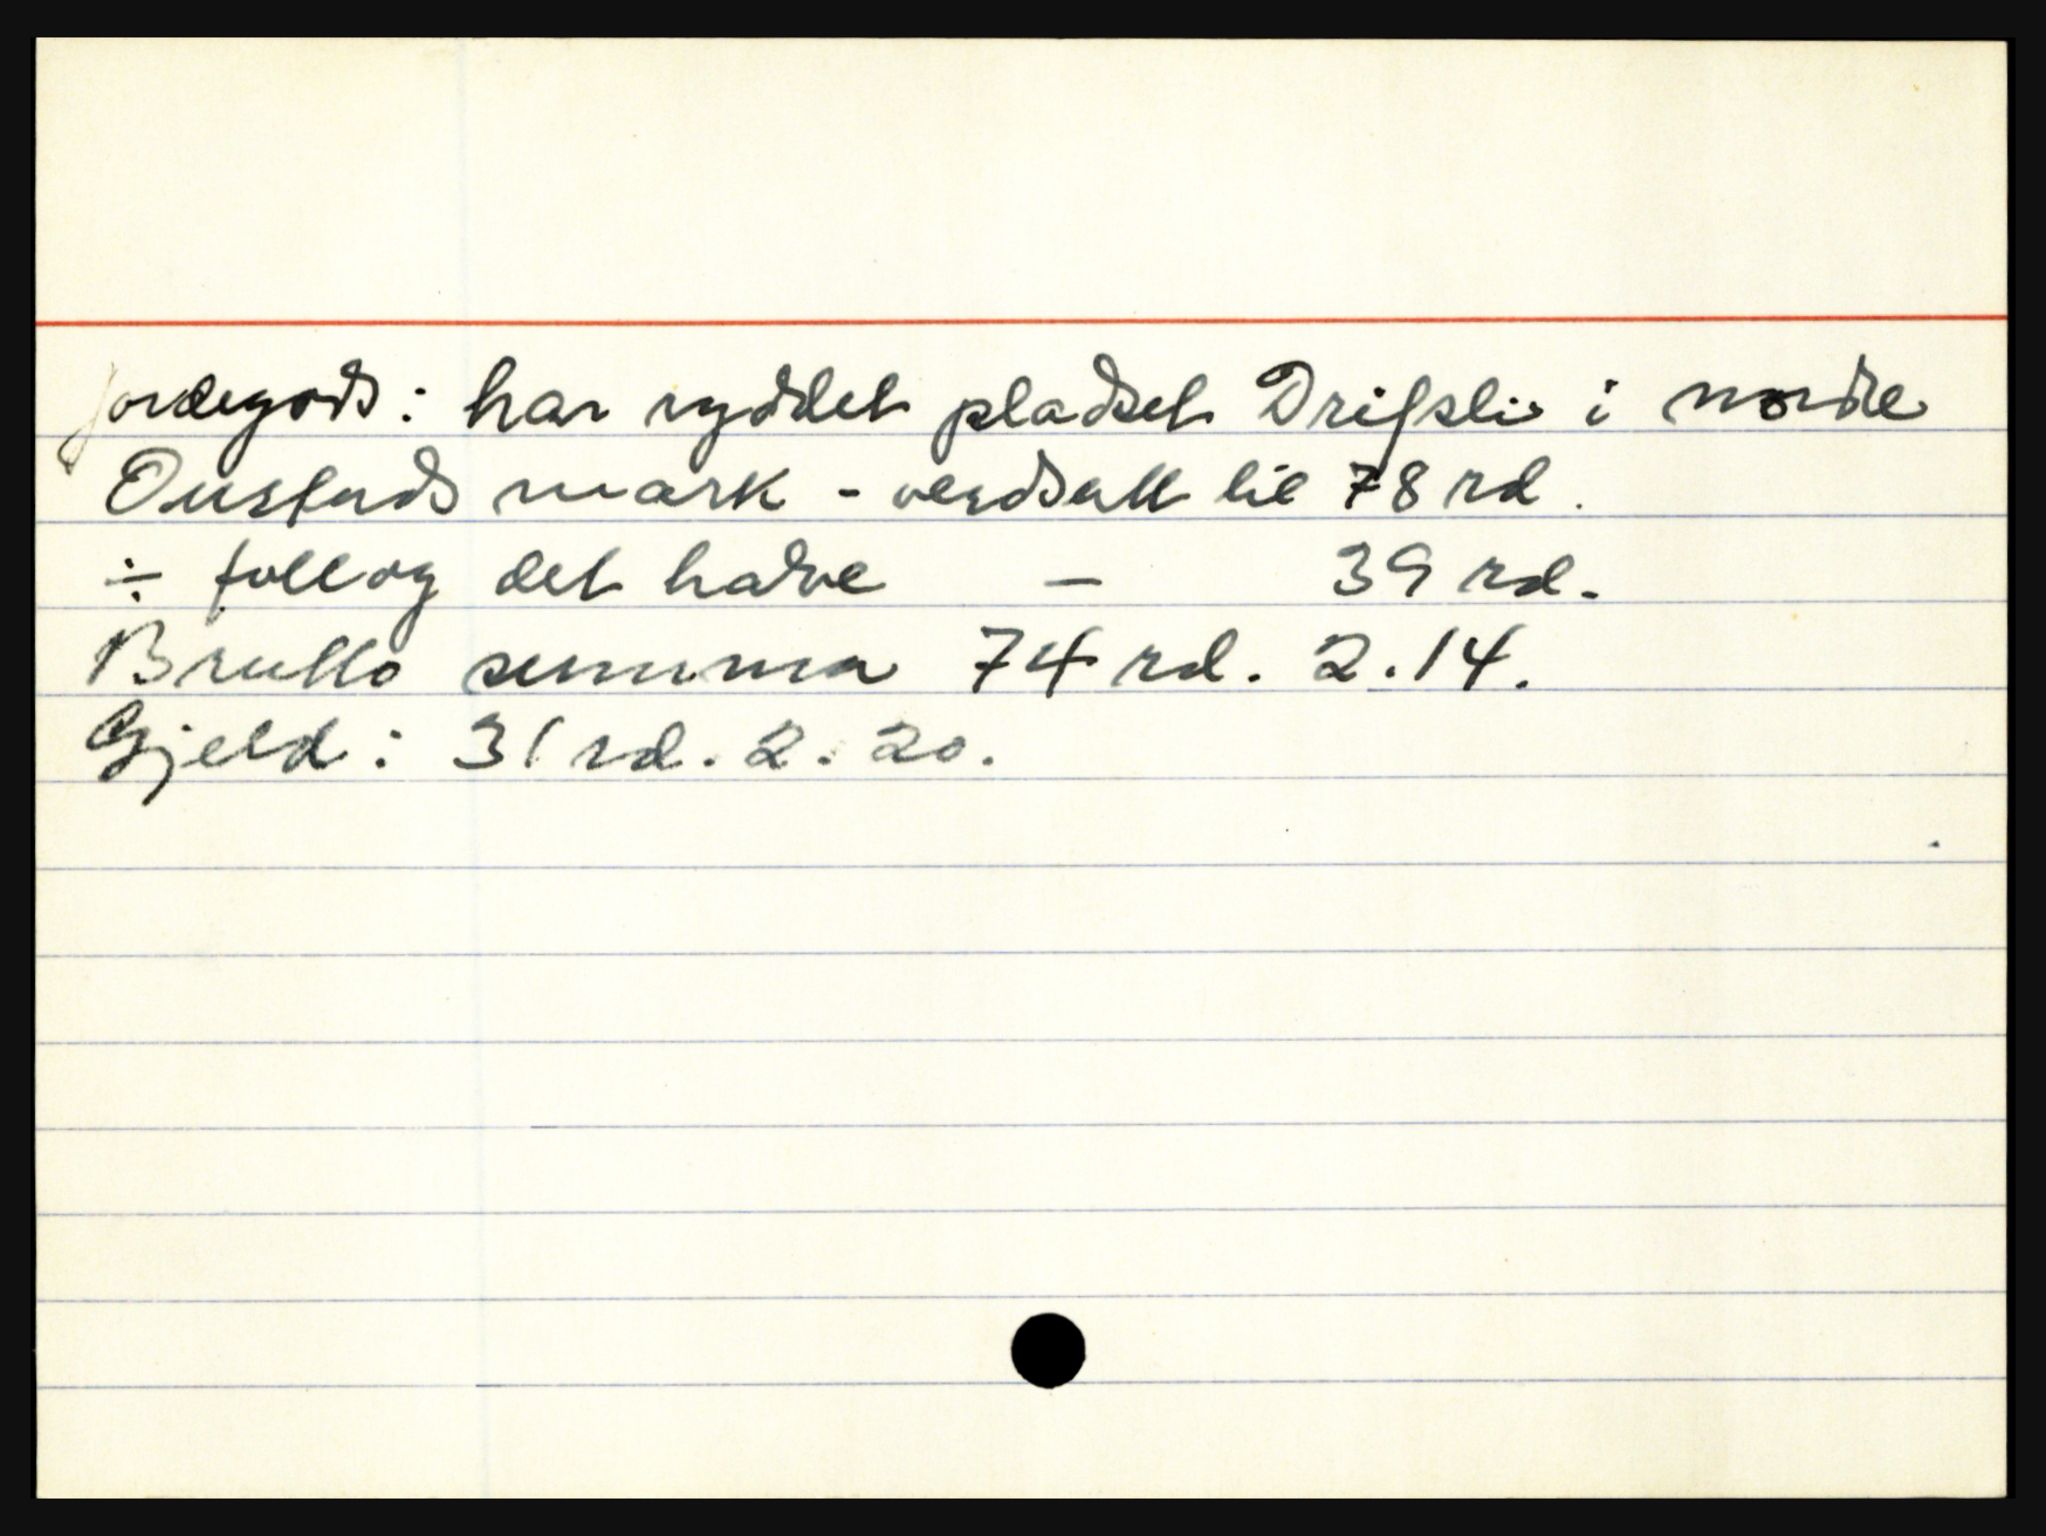 Jordegods: har ryddet pladset Drifsli i nordre
Oustads mark - verdsatt til 78 rd.
÷ follog det halve — 39 rd.
Brutto summa 74 rd. 2.14.
Gjeld: 31 rd. 2. 20.